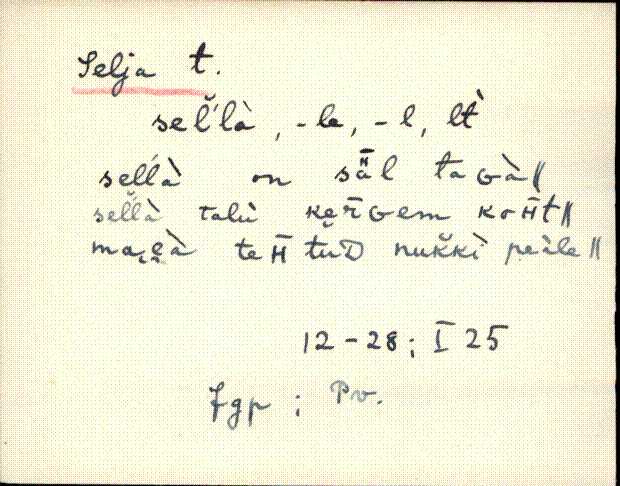 Selja t.
sel̆'là, -le, -l, lt̀
sel̆'là on säʜ̄l taɢà ‖
sel̆'là talù keʀ̄ɢem koʜ̄t ‖
mae̯à teʜ̄tuᴅ nuk̆kì peàle ‖
12-28; I 25
Jgp; Pv.